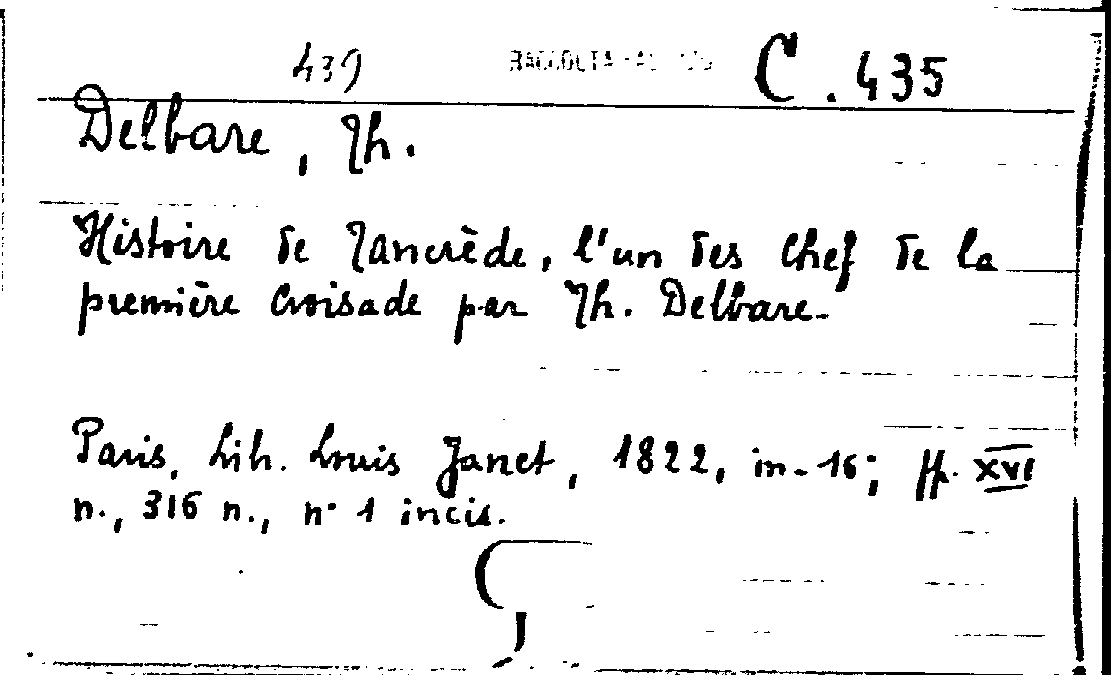 439 RACCOLTA C. 435
Delbare, Th.
Histoire de Tancrède, l'un des Chef de la
première Croisade par Th. Delbare.
Paris, Lib. Louis Janet, 1822, in-16; pp. XVI
n., 316 n., n° 1 incis.